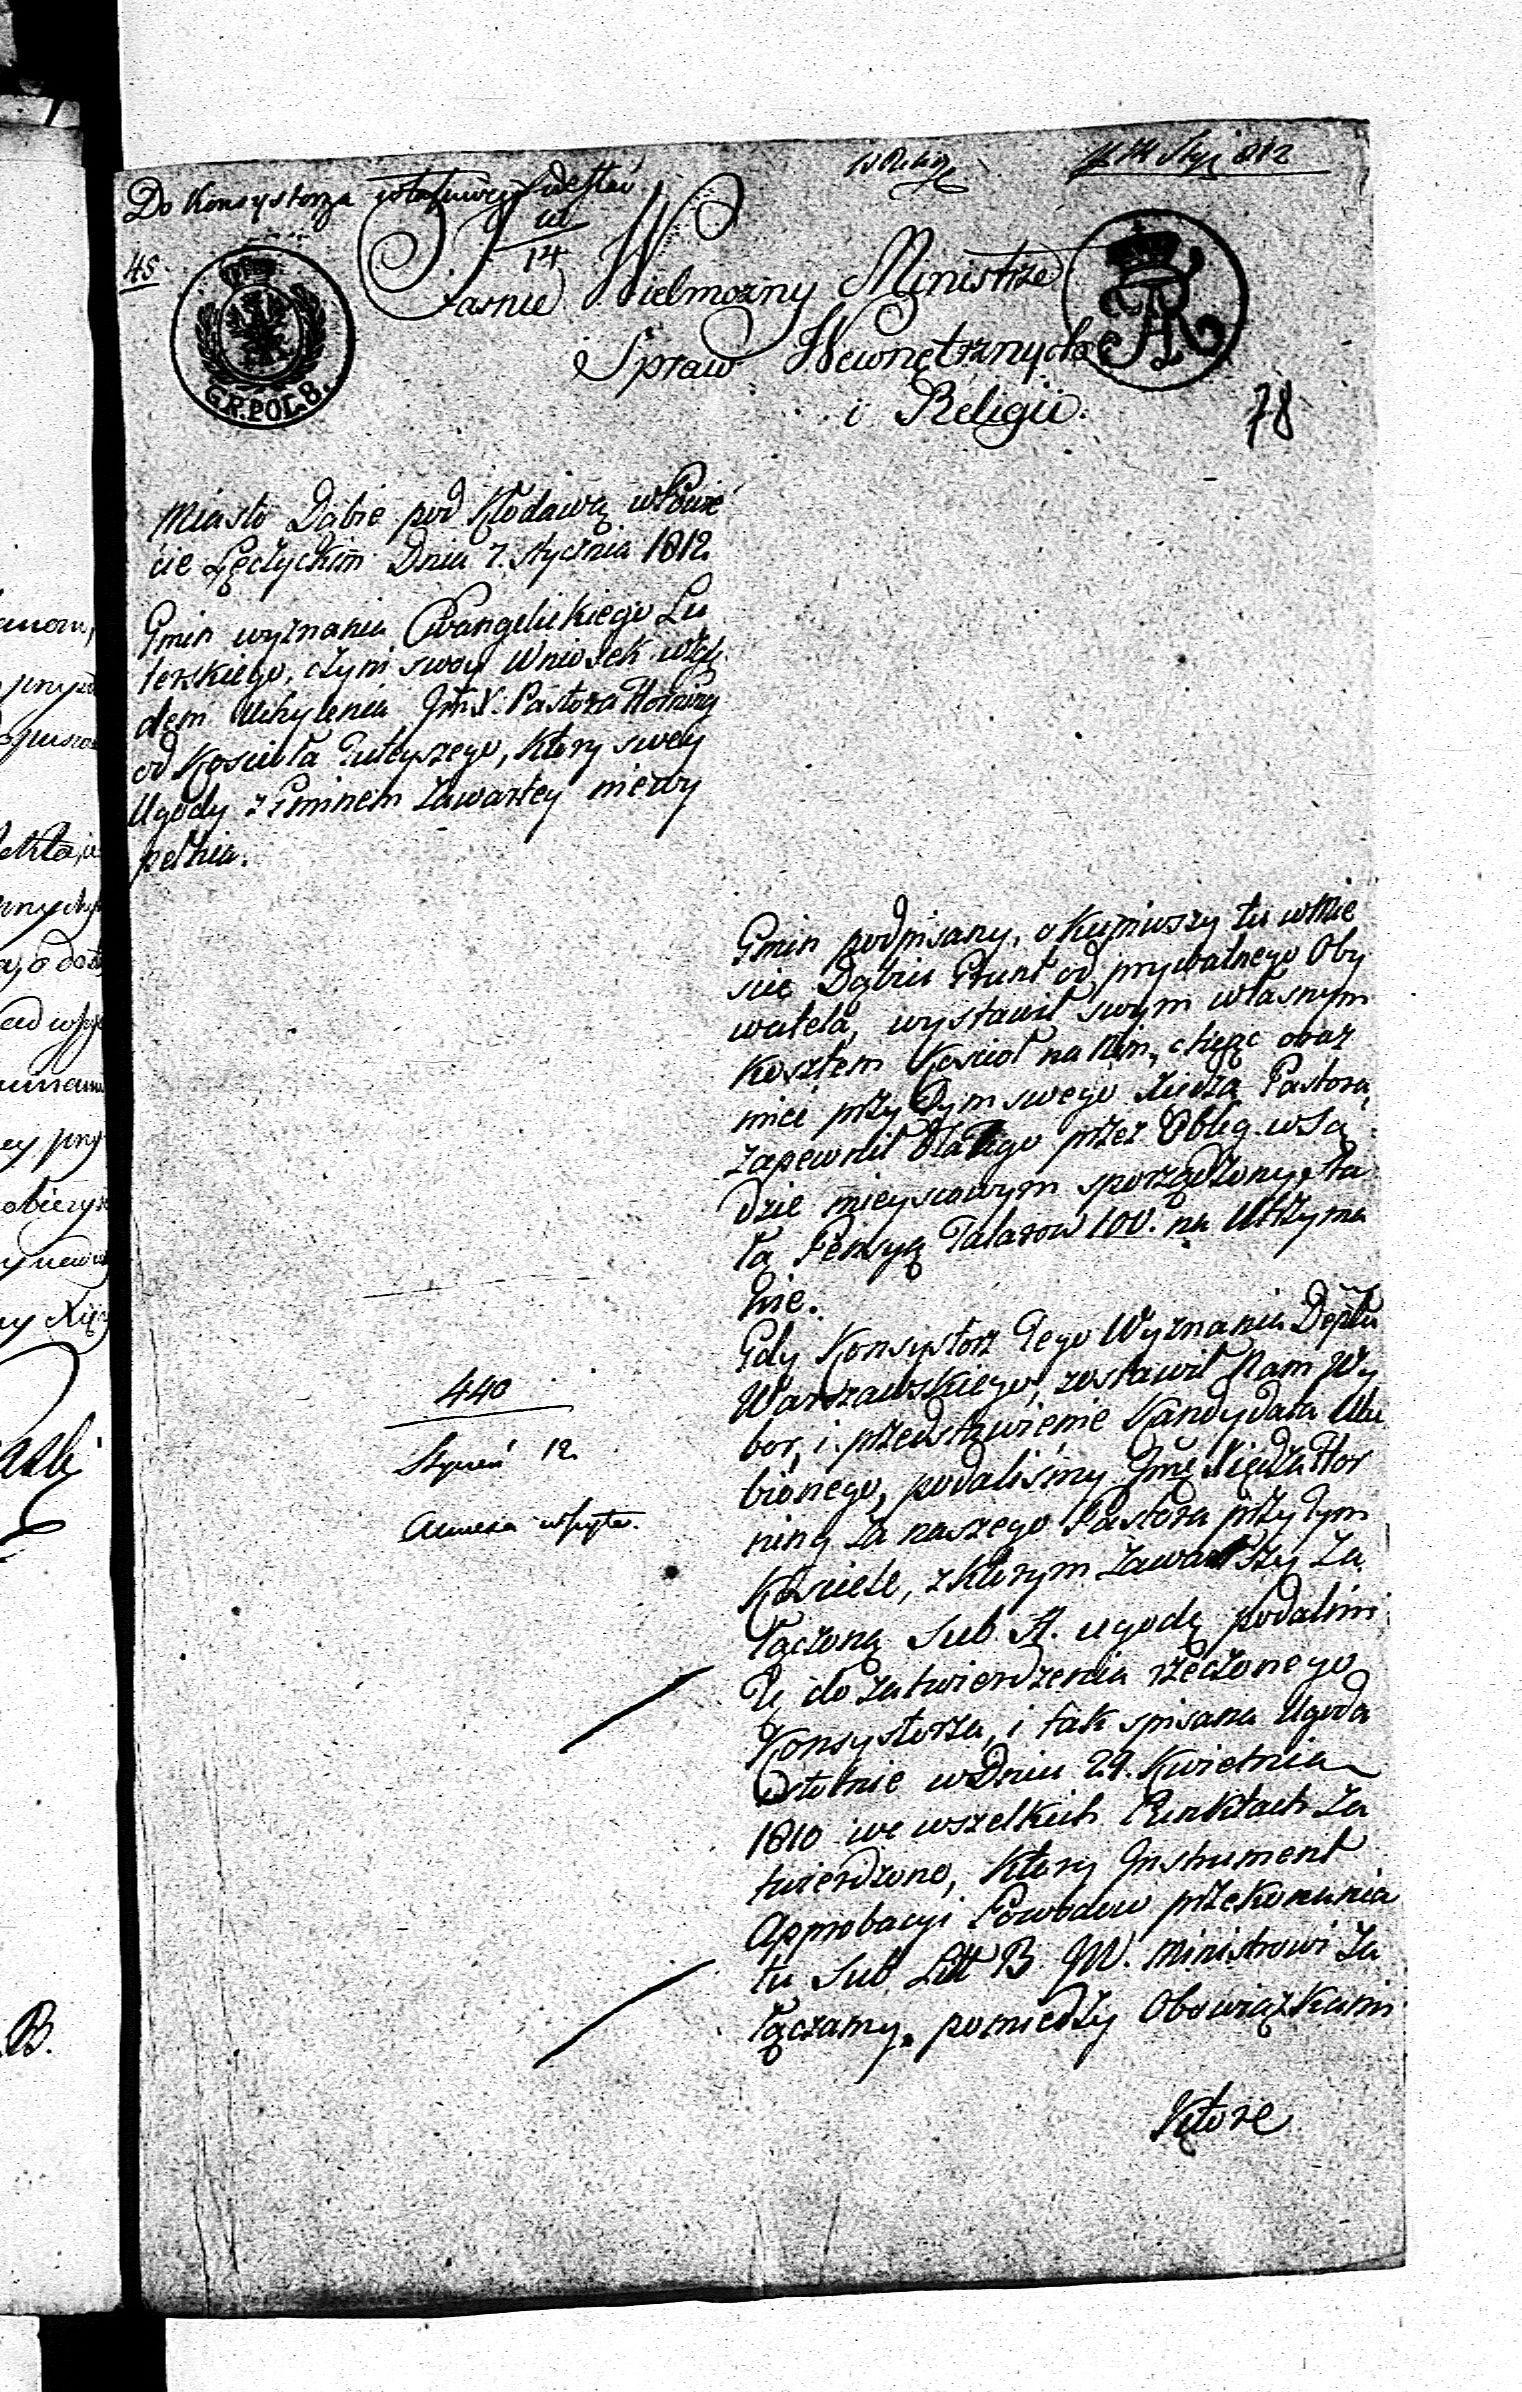 Do Konsystorza
45.
14
Jasnie Wielmożny Ministrze
Spraw Wewnętrznych
i Religii.
G.R.POL.8.
78
Miasto Dąbie pod Kłodawą w Powie
cie Łęczyckim Dniu 7. stycznia 1812.
Gmin wyznania Ewangelickiego Lu
terskiego, czyni swoy Wniosek wzglę
dem Uchylenia Jm X. Pastora Horning
od Kościoła Tuteyszego, który swey
Ugody z Gminem zawartey niewy
pełnia.
Gmin podpisany, okupiwszy tu w Mie
scie Dąbiu Grunt od prywatnego Oby
watela, wystawił swym własnym
kosztem Kościoł na Nim, chcąc oraz
mieć przy Tym swego Xiedza Pastora,
zapewnił Dla Tego przez Oblig w Są
dzie mieyscowym sporządzony, sta
łą Pensyą Talarow 100. na Utrzyma
nie.
Gdy Konsystorz Tego Wyznania Deptu
Warszawskiego, zostawił Nam Wy
bor, i przedstawienie Kandydata Ulu
bionego, podaliśmy Jmę Xiędza Hor
ning za naszego Pastora przy Tym
Kościele, z którym zawarłszy za
łączoną Sub. A. ugodę podaliśmi
Tę do zatwierdzenia rzeczonego
Konsystorza, i tak spisana Ugoda
istotnie w Dniu 29. Kwietnia
1810 we wszelkich Punktach za
twierdzono, który Instrument
Approbacyi Powodow przekonania
tu Sub Litt B. JW. Ministrowi za
łączamy. pomiedzy Obowiązkami
Które
440
Styczeń 12.
Annexa
B.